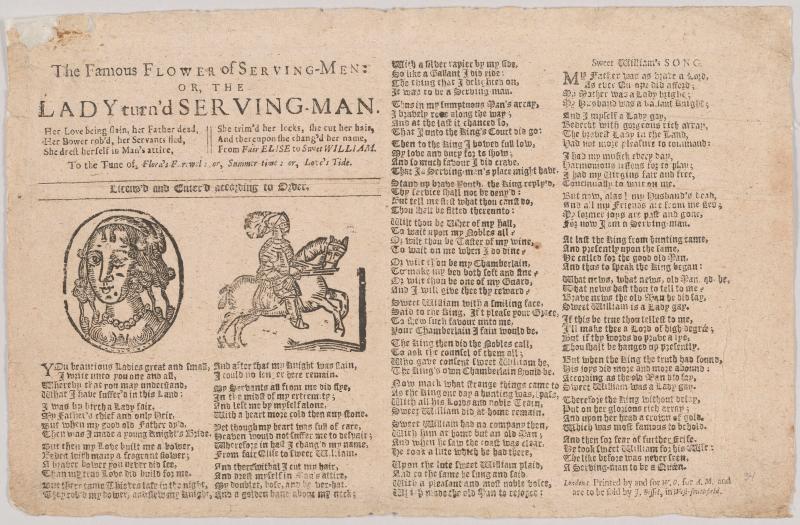 The Famous FLOWER of SERVING-MEN:
OR, THE
LADY turn'd SERVING-MAN.
Her Love being slain, her Father dead,
Her Bower rob'd, her Servants fled,
She drest herself in Man's attire,
She trim'd her locks, she cut her hair,
And thereupon she chang'd her name,
From Fair ELISE to Sweet WILLIAM.
To the Tune of, Flora's Farewel: or, Summer time: or, Love's Tide.
Licens'd and Enter'd according to Order.
YOu beautious Ladies great and small,
I write unto you one and all,
Whereby that you may understand,
What I have suffer'd in this Land:
I was by birth a Lady fair,
My Father's chief and only Heir,
But when my good old Father dy'd,
Then was I made a young Knight's Bride.
But then my Love built me a bower,
Bedeckt with many a fragrant flower;
A braver bower you never did see,
Than my true Love did build for me.
But there came Thieves late in the night,
They rob'd my bower, and slew my Knight,
And after that my Knight was slain,
I could no longer here remain.
My Servants all from me did flye,
In the midst of my extremity;
And left me by my self alone,
With a heart more cold then any stone.
Yet though my heart was full of care,
Heaven would not suffer me to despair;
Wherefore in hast I chang'd my name,
From fair Elise to sweet William.
And therewithal I cut my hair,
And drest my self in Man's attire,
My doublet, hose, and bever-hat,
And a golden band about my neck;
With a silver rapier by my side,
So like a Gallant I did ride:
The thing that I delighted on,
It was to be a Serving-man.
Thus in my sumptuous Man's array,
I bravely rode along the way;
And at the last it chanced so,
That I unto the King's Court did go:
Then to the King I bowed full low,
My love and duty for to show;
And so much favour I did crave,
That I a Serving-man's place might have.
Stand up brave Youth, the King reply'd,
Thy service shall not be deny'd:
But tell me first what thou canst do,
Thou shalt be fitted thereunto:
Wilt thou be Usher of my hall,
To wait upon my Nobles all?
Or wilt thou be Taster of my wine,
To wait on me when I do dine?
Or wilt thou be my Chamberlain,
To make my bed both soft and fine?
Or wilt thou be one of my Guard,
And I will give thee thy reward?
Sweet William with a smiling face,
Said to the King, If't please your Grace,
To shew such favour unto me,
Your Chamberlain I fain would be.
The King then did the Nobles call,
To ask the counsel of them all;
Who gave consent sweet William he,
The King's own Chamberlain should be.
Now mark what strange things came to pass,
As the King one day a hunting was,
With all his Lords and noble Train,
Sweet William did at home remain.
Sweet William had no company then,
With him at home but an old Man;
And when he saw the coast was clear,
He took a lute which he had there,
Upon the lute sweet William plaid,
And to the same he sung and said,
With a pleasant and most noble voice,
Which made the old Man to rejoice:
Sweet William's SONG.
MY Father was as brave a Lord,
As ever Europe did afford;
My Mother was a Lady bright;
My Husband was a valiant Knight;
And I my self a Lady gay,
Bedeckt with gorgeous rich array,
The bravest Lady in the Land,
Had not more pleasure to command:
I had my musick every day,
Harmonious lessons for to play;
I had my Virgins fair and free,
Continually to wait on me.
But now, alas! my Husband's dead,
And all my Friends are from me fled;
My former joys are past and gone,
For now I am a Serving-man.
At last the King from hunting came,
And presently upon the same,
He called for the good old Man,
And thus to speak the King began:
What news, what news, old Man, qd. he,
What news hast thou to tell to me?
Brave news the old Man he did say,
Sweet William is a Lady gay.
If this be true thou tellest to me,
I'll make thee a Lord of high degree;
But if thy words do prove a lye,
Thou shalt be hanged up presently.
But when the King the truth had found,
His joys did more and more abound:
According as the old Man did say,
Sweet William was a Lady gay.
Therefore the King without delay,
Put on her glorious rich array;
And upon her head a crown of gold,
Which was most famous to behold.
And then for fear of further strife,
He took sweet William for his Wife:
The like before was never seen,
A Serving-man to be a Queen.
London: Printed by and for W. O. for A. M. and
are to be sold by J. Bissel, in West-smithfield.